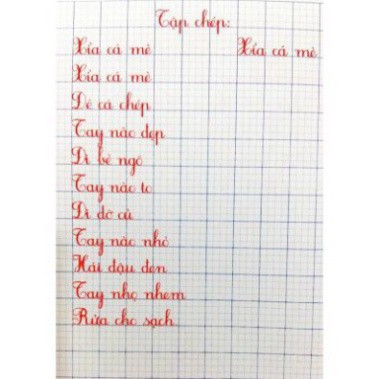 Tập chép:
Xỉa cá mè Xỉa cá mè
Xỉa cá mè
Dê cá chép
Tay nào đẹp
Đi bẻ ngô
Tay nào to
Đi dỡ củ
Tay nào nhỏ
Hái đậu đen
Tay nhọ nhem
Rửa cho sạch